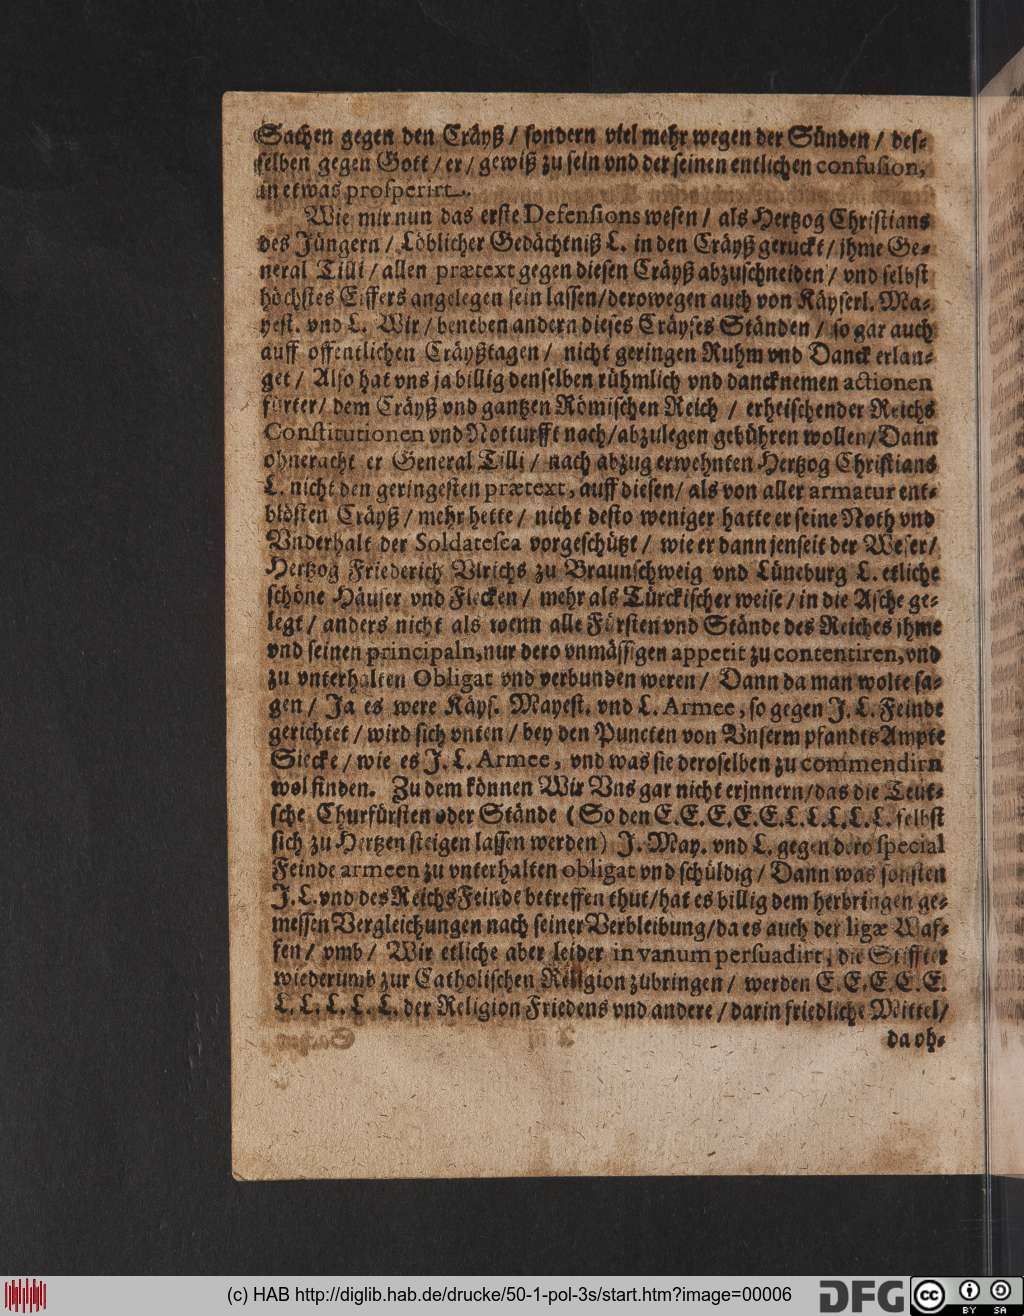 Sachen gegen den Cräyß / sondern viel mehr wegen der Sünden / des-
selben gegen Gott / er / gewiß zu sein vnd der seinen entlichen confusion,
in etwas prosperirt.
Wie mir nun das erste Defensions wesen / als Hertzog Christians
des Jüngern / Löblicher Gedächtniß L. in den Cräyß geruckt / jhme Ge-
neral Tilli / allen prætext gegen diesen Cräyß abzuschneiden / vnd selbst
höchstes Eiffers angelegen sein lassen / derowegen auch von Käyserl. Ma-
yest. vnd L. Wir / beneben andern dieses Cräyses Ständen / so gar auch
auff offentlichen Cräyßtagen / nicht geringen Ruhm vnd Danck erlan-
get / Also hat vns ja billig denselben rühmlich vnd dancknemen actionen
fürter / dem Cräyß vnd gantzen Römischen Reich / erheischender Reichs
Constitutionen vnd Notturfft nach / abzulegen gebühren wollen / Dann
ohneracht er General Tilli / nach abzug erwehnten Hertzog Christians
L. nicht den geringesten prætext, auff diesen / als von aller armatur ent-
blösten Cräyß / mehr hette / nicht desto weniger hatte er seine Noth vnd
Vnderhalt der Soldatesca vorgeschützt / wie er dann jenseit der Weser /
Hertzog Friederich Vlrichs zu Braunschweig vnd Lüneburg L. etliche
schöne Häuser vnd Flecken / mehr als Türckischer weise / in die Asche ge-
legt / anders nicht als wenn alle Fürsten vnd Stände des Reiches jhme
vnd seinen principaln, nur dero vnmässigen appetit zu contentiren, vnd
zu vnterhalten Obligat vnd verbunden weren / Dann da man wolte sa-
gen / Ja es were Käys. Mayest. vnd L. Armee, so gegen J. L. Feinde
gerichtet / wird sich vnten / bey den Puncten von Vnserm pfandts Ampte
Siecke / wie es J. L. Armee, vnd was sie deroselben zu commendirn
wol finden. Zu dem können Wir Vns gar nicht erjnnern / das die Teut-
sche Churfürsten oder Stände (So den E. E. E. E. E. L. L. L. L. L. selbst
sich zu Hertzen steigen lassen werden) J. May. vnd L. gegen dero special
Feinde armeen zu vnterhalten obligat vnd schüldig / Dann was sonsten
J. L. vnd des Reichs Feinde betreffen thut / hat es billig dem herbringen ge-
messen Vergleichungen nach seiner Verbleibung / da es auch der ligæ Waf-
fen / vmb / Wir etliche aber leider in vanum persuadirt, die Stiffter
wiederumb zur Catholischen Religion zubringen / werden E. E. E. E. E.
L. L. L. L. L. der Religion Friedens vnd andere / darin friedliche Mittel /
da oh-
(c) HAB http://diglib.hab.de/drucke/50-1-pol-3s/start.htm?image=00006
DFG
cc
BY SA